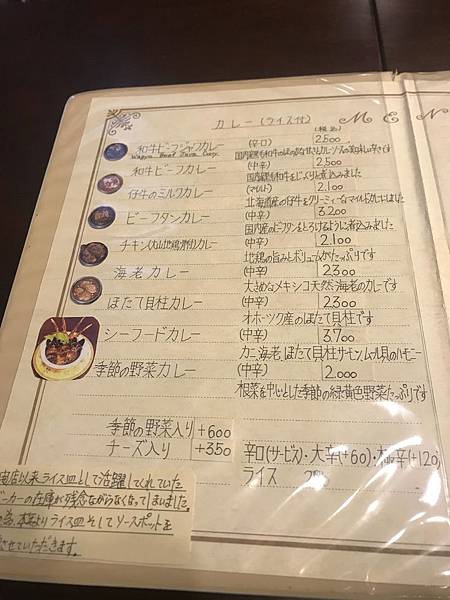 カレー(ライス付)
(税込)
M E N
和牛ビーフジャワカレー (辛口) 2500
Wagyu Beef Java Curry
国内産黒毛和牛のほの甘さとカレーソースの美味しい辛さです
和牛ビーフカレー (中辛) 2500
国内産黒毛和牛をじっくりと煮込みました
仔牛のミルクカレー (マイルド) 2.100
北海道産の仔牛をクリーミィなマイルドカレーにしました
ビーフタンカレー (中辛) 3200
国内産のビーフタンをとろけるように煮込みました
チキンカレー (中辛) 2.100
地鶏の旨みとボリュームがたっぷりです
海老カレー (中辛) 2300
大きめなメキシコ天然海老のカレーです
ほたて貝柱カレー (中辛) 2300
オホーツク産のほたて貝柱です
シーフードカレー (中辛) 3.700
カニ海老ほたて貝柱サーモンムール貝のハーモニー
季節の野菜カレー (中辛) 2.000
根菜を中心とした季節の緑黄色野菜たっぷりです
季節の野菜入り +600
チーズ入り +350
辛口(サービス)・大辛(+60)・極辛(+120)
ライス
以来ライス皿として活躍してくれていた
ーカーの在庫が残念ながらなくなってしまいました。
よりライス皿そしてソースポットを
させていただきます。